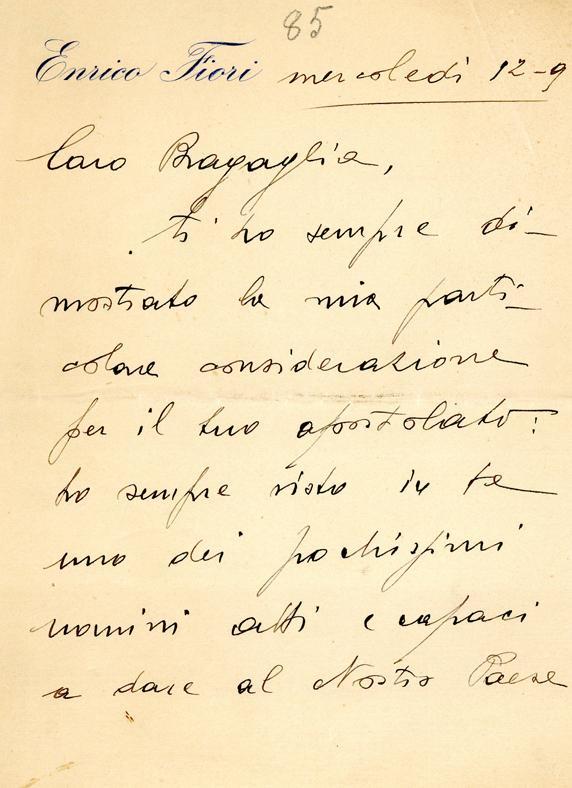 85
Enrico Fiori mercoledì 12-9
Caro Bragaglia,
ti ho sempre di-
mostrato la mia parti-
colare considerazione
per il tuo apostolato:
ho sempre visto in te
uno dei pochissimi
uomini atti e capaci
a dare al Nostro Paese